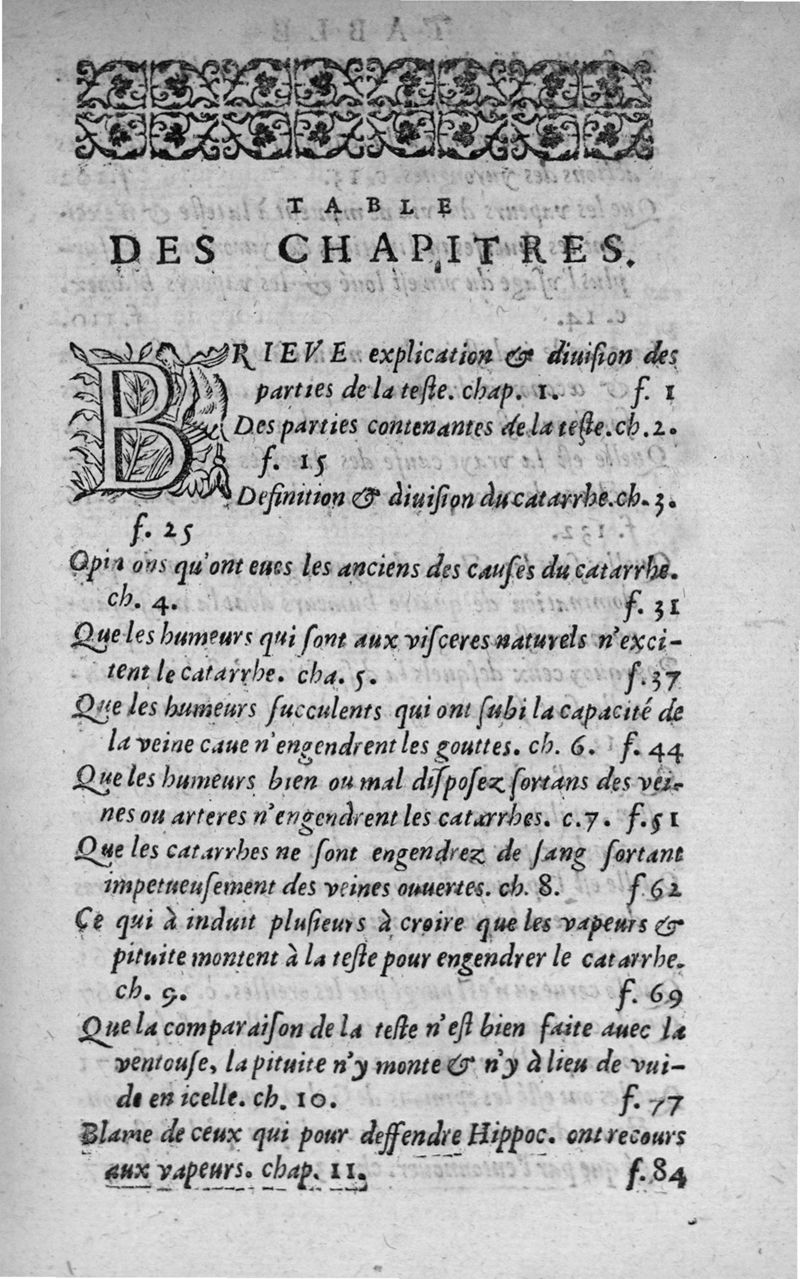 TABLE
DES CHAPITRES.
BRIEVE explication & diuiſion des
parties de la teſte. chap. 1. f. 1
Des parties contenantes de la teſte. ch. 2.
f. 15
Definition & diuiſion du catarrhe. ch. 3.
f. 25
Opin ons qu'ont eues les anciens des cauſes du catarrhe.
ch. 4. f. 31
Que les humeurs qui ſont aux viſceres naturels n'exci-
tent le catarrhe. cha. 5. f. 37
Que les humeurs ſucculents qui ont ſubi la capacité de
la veine caue n'engendrent les gouttes. ch. 6. f. 44
Que les humeurs bien ou mal diſpoſez ſortans des vei-
nes ou arteres n'engendrent les catarrhes. c. 7. f. 51
Que les catarrhes ne ſont engendrez de ſang ſortant
impetueuſement des veines ouuertes. ch. 8. f 62
Ce qui à induit pluſieurs à croire que les vapeurs &
pituite montent à la teſte pour engendrer le catarrhe.
ch. 9. f. 69
Que la comparaiſon de la teſte n'eſt bien faite auec la
ventouſe, la pituite n'y monte & n'y à lieu de vui-
de en icelle. ch. 10. f. 77
Blame de ceux qui pour deffendre Hippoc. ont recours
aux vapeurs. chap. 11. f. 84